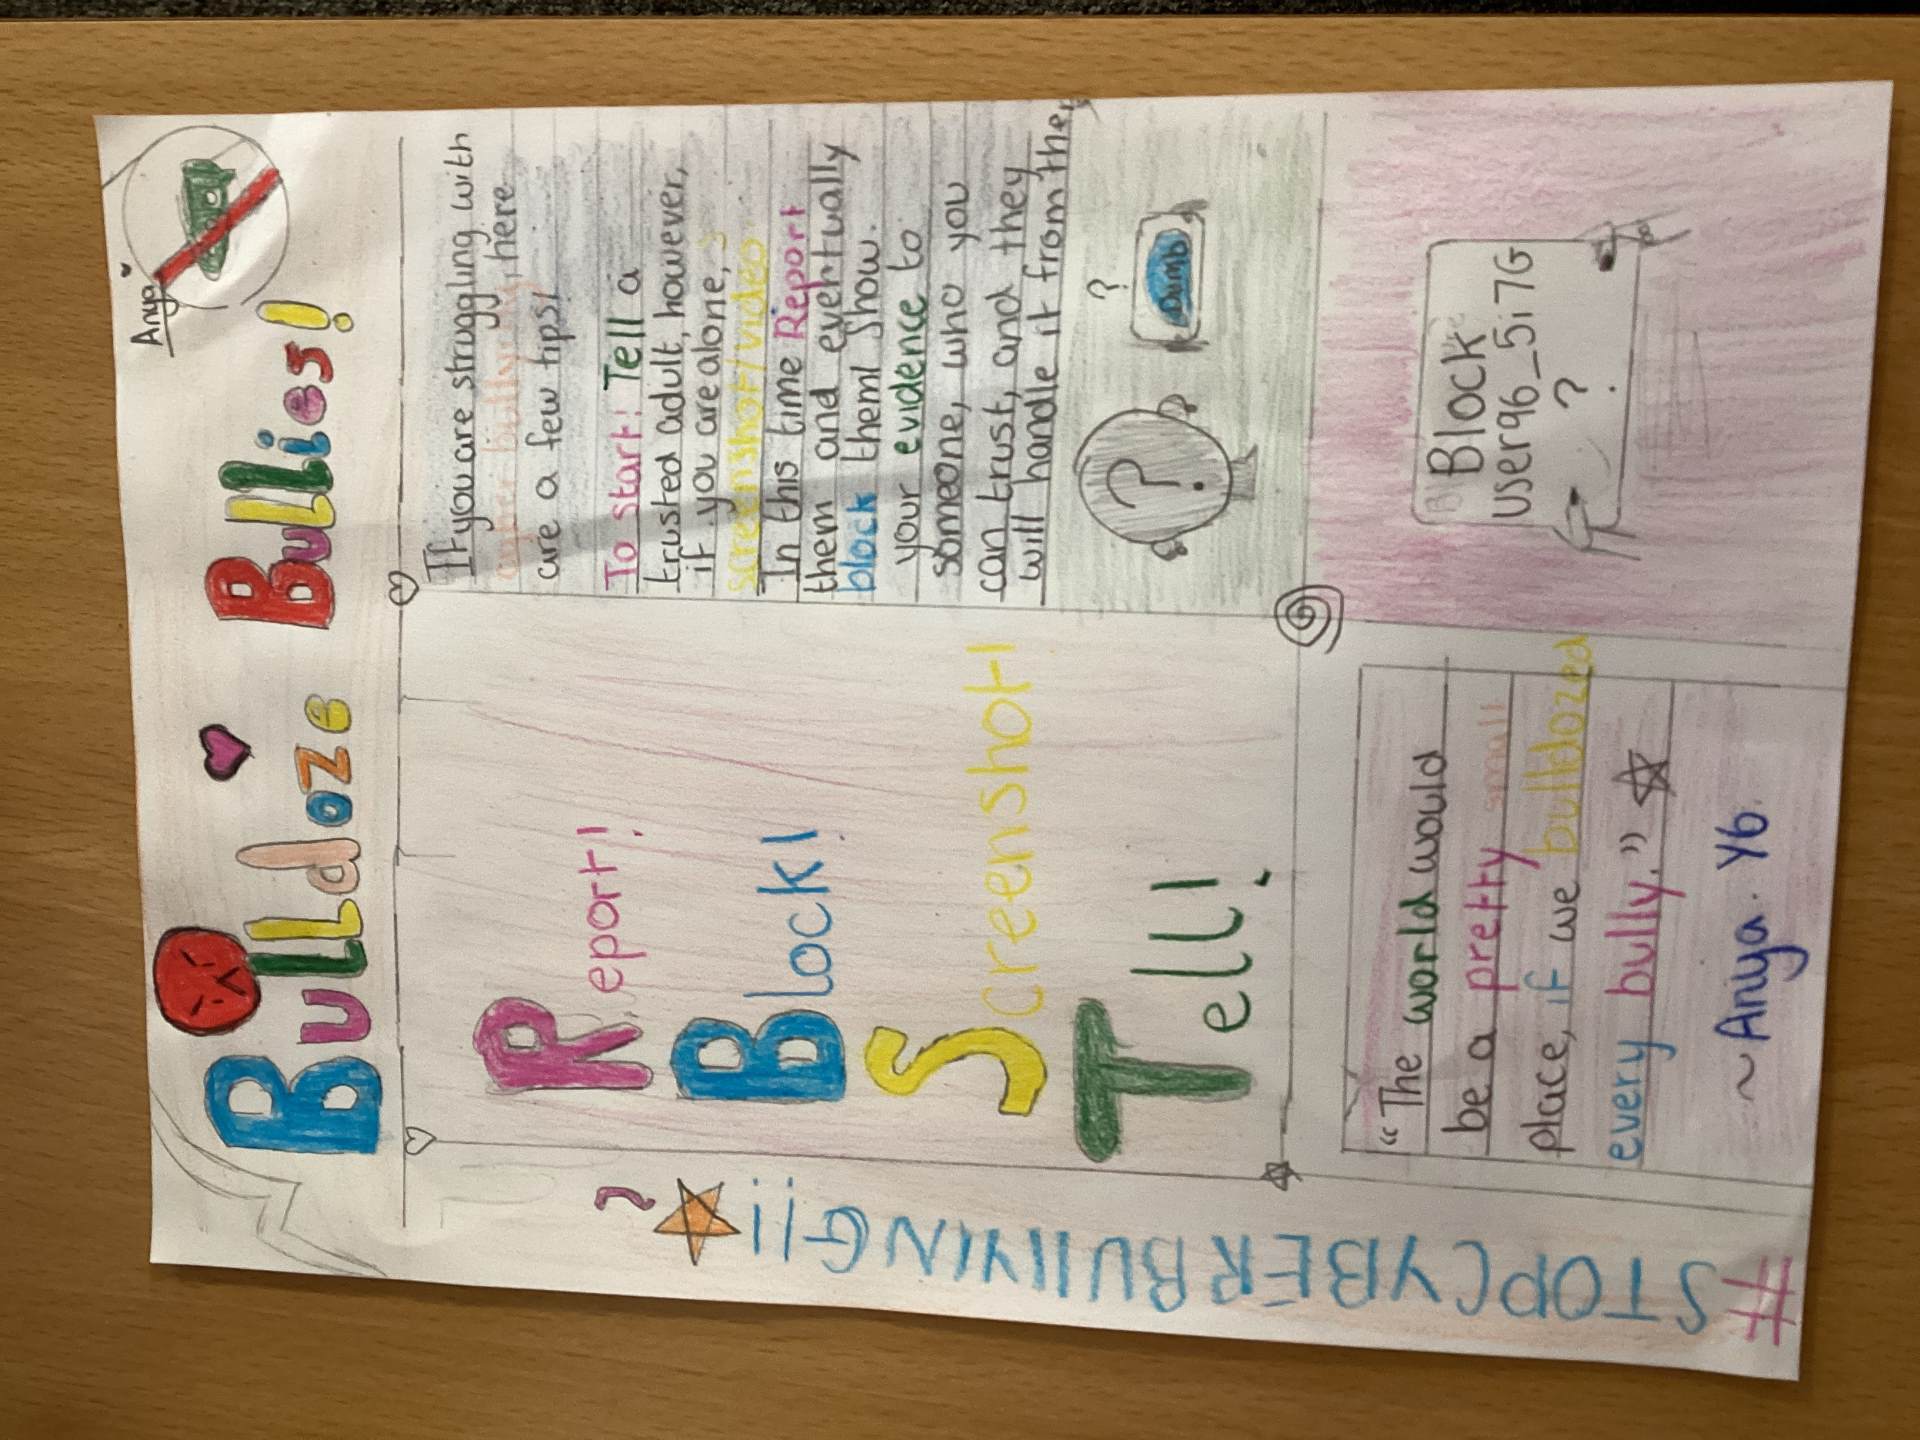 Anya
Bulldoze Bullies!
Report!
Block!
Screenshot!
Tell!
If you are struggling with
cyber bullying, here
are a few tips!
To start! Tell a
trusted adult, however,
if you are alone,
screenshot/video
In this time Report
them and eventually
block them! Show
your evidence to
someone, who you
can trust, and they
will handle it from there
?
?
Dumb
#STOPCYBERBULLYING!!
"The world would
be a pretty small
place, if we bulldozed
every bully."
~ Anya. Y6.
Block
user96_5i7G
?